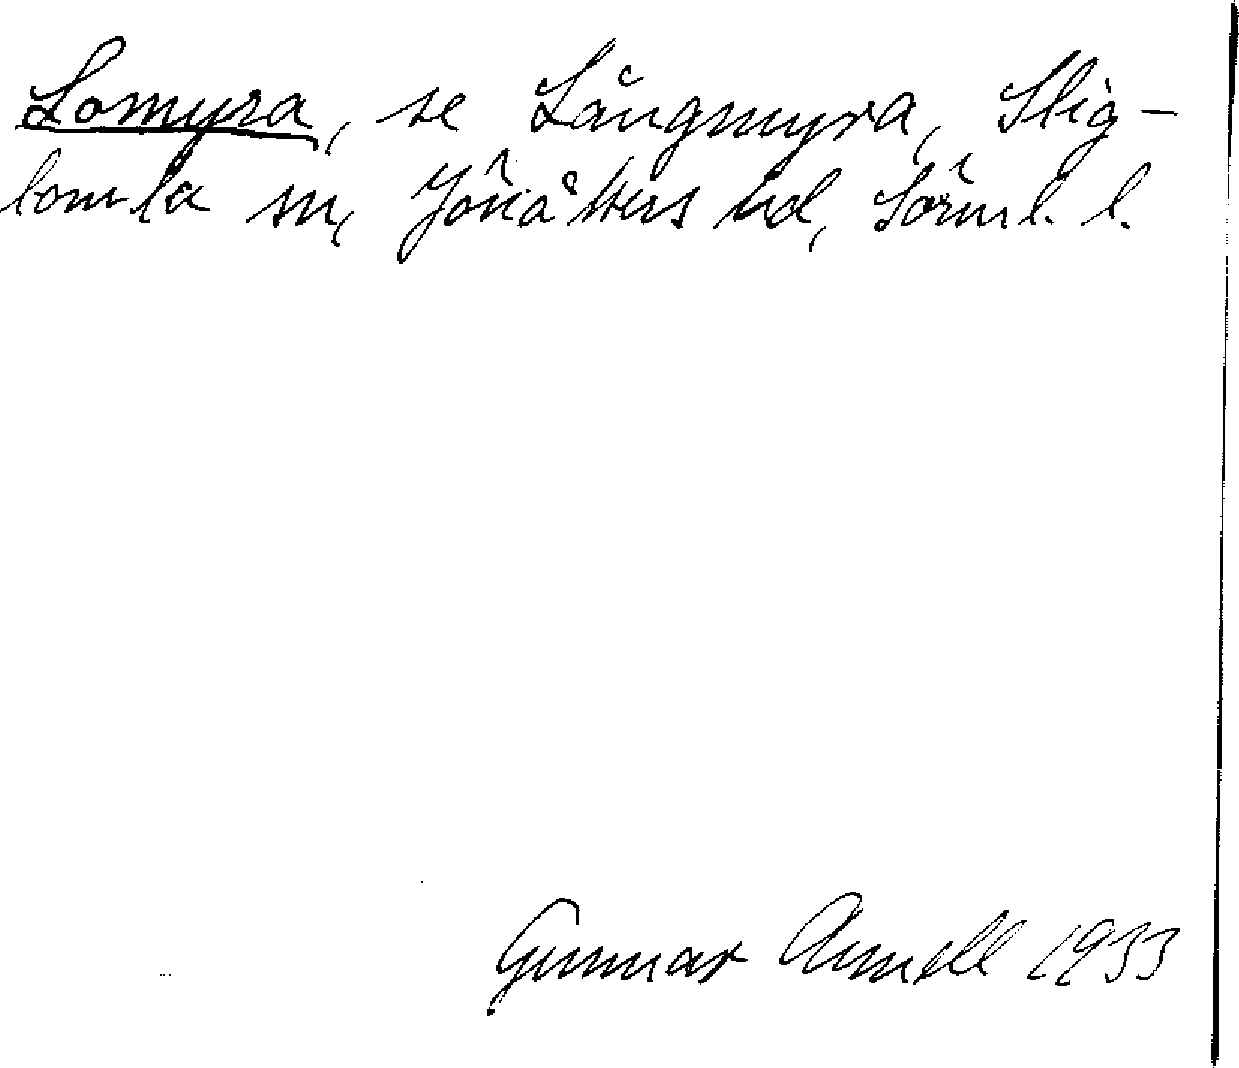 Lomyra, se Långmyra, Stig-
tomta sn, Jönåkers hd, Sörml. l.
Gunnar Arnell 1933